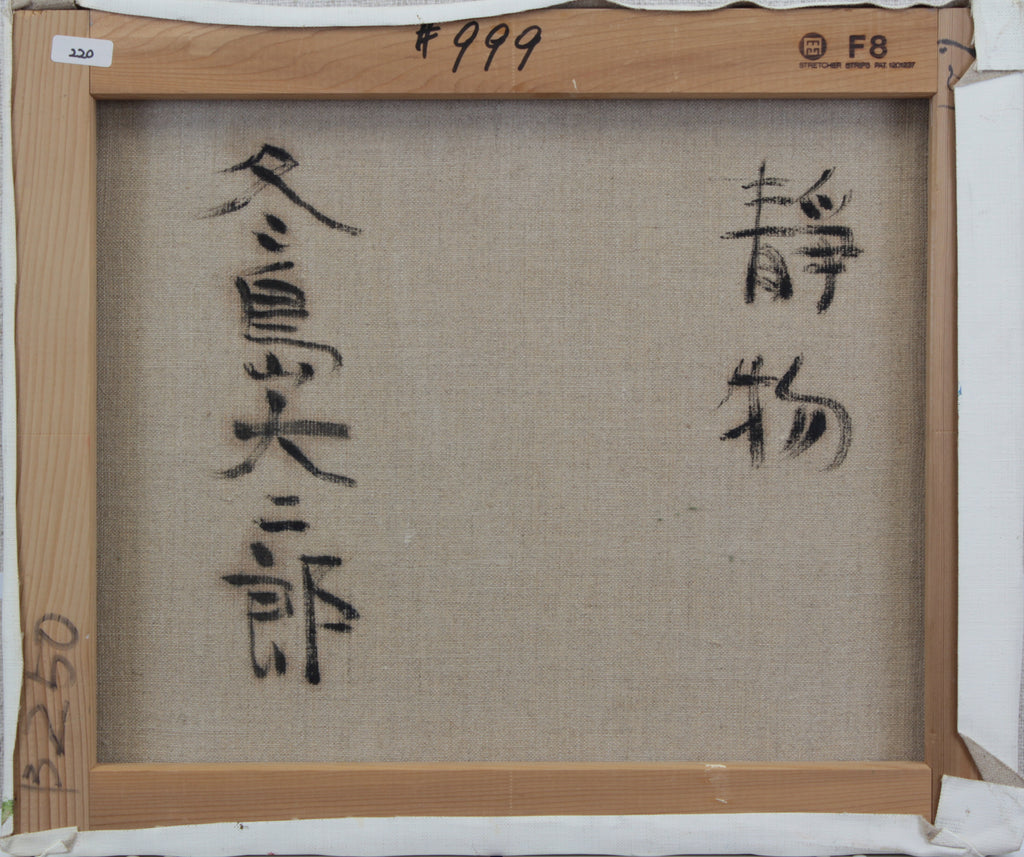 220
#999
F8
STRETCHER STRIPS PAT. 1201237
靜物
冬島大二郎
B250